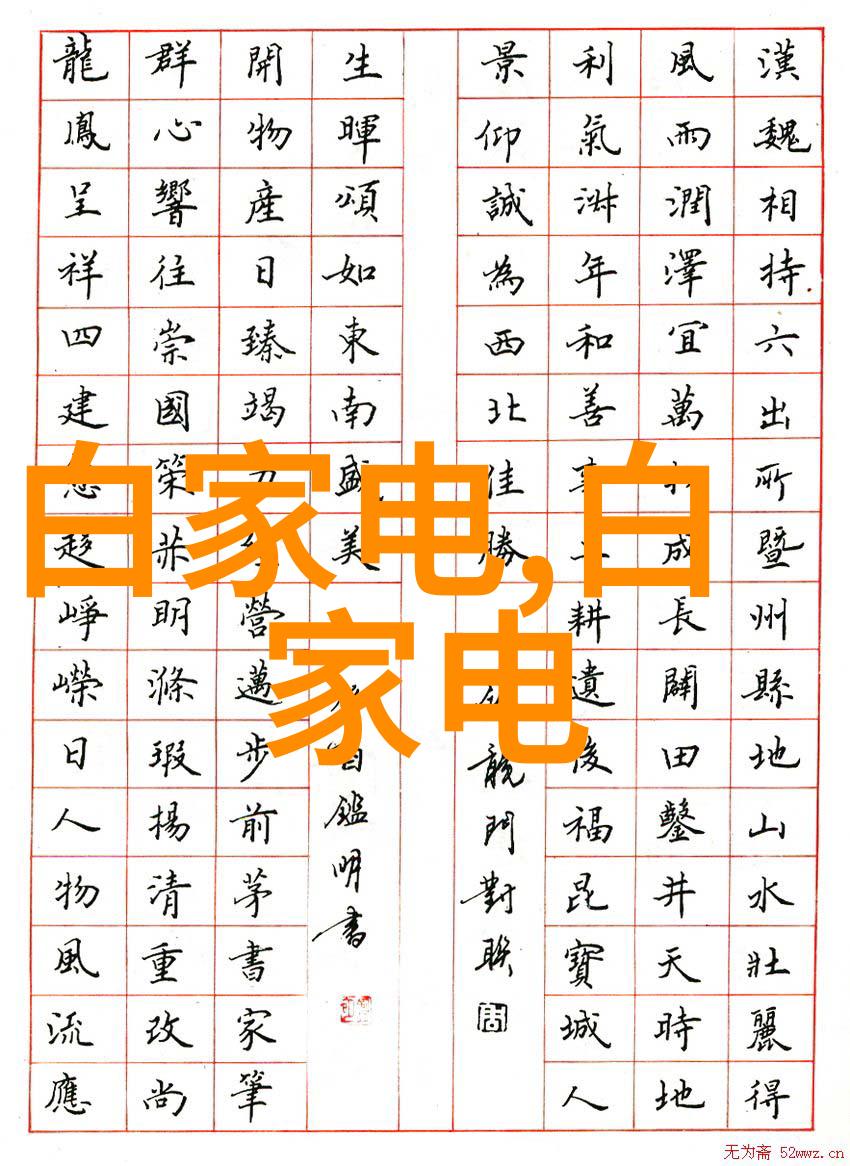 漢魏相持六出所暨州縣地山水壯麗得
風雨潤澤宜萬成長闢田鑿井天時地
利氣淋年和善耕遺後福昆寶城人
景仰誠為西北佳勝
龍門對聯
龍鳳呈祥四建趍崢嶸日人物風流應
群心響往崇國策明滌瑕揚清重改尚
開物產日臻竭力營邁步前茅書家筆
生暉頌如東南盛美
鑑明書
白家电,白
家电
无为斋 52wwz.cn